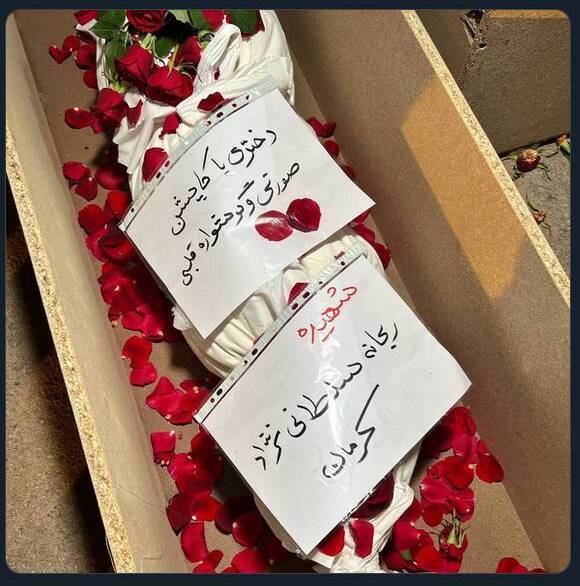 دختری با کاپشن
صورتی و گوشواره قلبی
شهیده
ریحانه سلطانی نژاد
کرمان